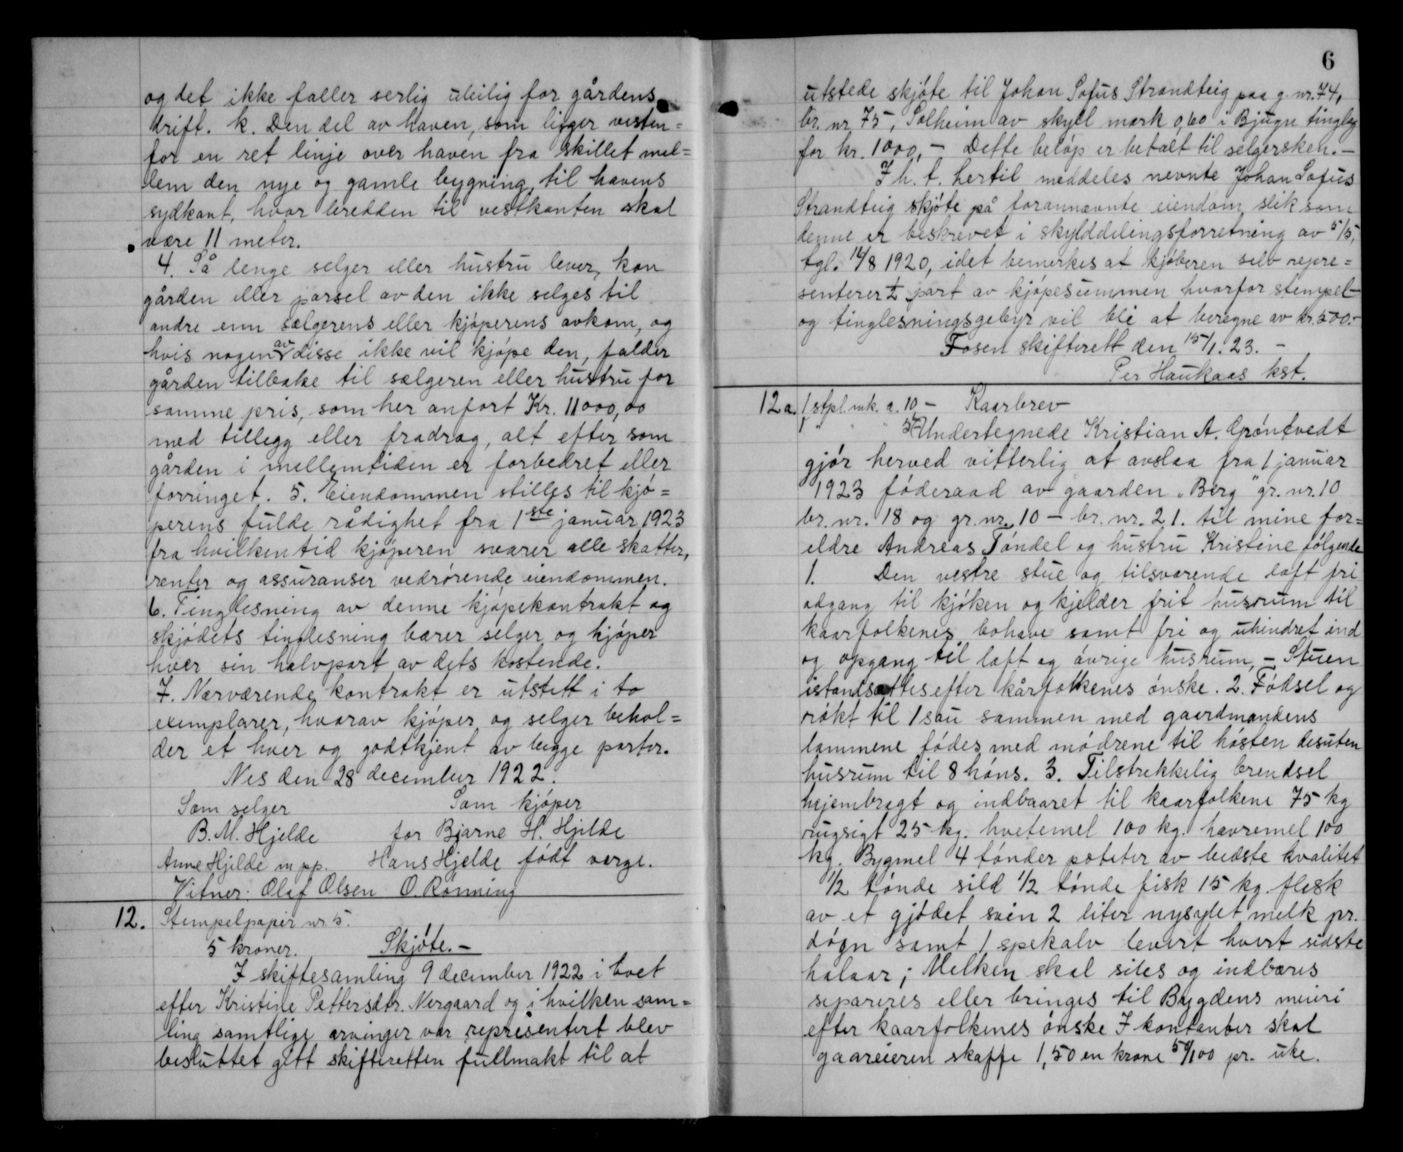 og det ikke faller serlig uleilig for gårdens
drift. k. Den del av haven, som ligger vesten=
for en ret linje over haven fra skillet mel=
lem den nye og gamle bygning, til havens
sydkant, hvor bredden til vestkanten skal
være 11 meter.
4. Så lenge selger eller hustru lever, kan
gården eller parsel av den ikke selges til
andre enn sælgerens eller kjøperens avkom, og
hvis nogen av disse ikke vil kjøpe den, falder
gården tilbake til sælgeren eller hustru for
samme pris, som her anfört Kr. 11000,00
med tillegg eller fradrag, alt efter som
gården i mellemtiden er forbedret eller
forringet. 5. Eiendommen stilles til kjö=
perens fulde rådighet fra 1ste januar 1923
fra hvilken tid kjøperen svarer alle skatter,
renter og assuranser vedrørende eiendommen.
6. Tinglesning av denne kjøpekontrakt og
skjödets tinglesning bærer selger og kjøper
hver sin halvpart av dets kostende.
7. Nærværende kontrakt er utstett i to
exemplarer, hvorav kjøper og selger behol=
der et hver og godtkjent av begge parter.
Nes den 28 december 1922.
Som selger Som kjøper
B. M. Hjelde for Bjarne H. Hjelde
Anne Hjelde m pp. Hans Hjelde født verge.
Vitner: Olaf Olsen O. Rönning
12. Stempelpapir nr. 5.
5 kroner. Skjöte.-
I skiftesamling 9 december 1922 i boet
efter Kristine Pettersdtr. Nergaard og i hvilken sam=
ling samtlige arvinger var representert blev
besluttet gitt skifteretten fullmakt til at
6
utstede skjöte til Johan Sofus Strandteig paa g. nr. 74,
br. nr. 75, Solheim av skyll mark 0,60 i Bjugn tinglag
for kr. 1000,- Dette belöp er betalt til selgersken.-
I h. t. hertil meddeles nevnte Johan Sofus
Strandteig skjöte på forannævnte eiendom slik som
denne er beskrevet i skylddelingsforretning av 5/5,
tgl. 14/8 1920, idet bemerkes at kjöberen selv repre=
senterer 1/2 part av kjöpesummen hvorfor stempel-
og tinglesningsgebyr vil bli at beregne av kr. 500.-
Fosen skifterett den 15/1. 23.-
Per Haukaas kst.
12 a. 1 stpl. mk. a. 10 - Kaarbrev
1 " " " 5
Undertegnede Kristian A. Gröntvedt
gjör herved vitterlig at avslaa fra 1 januar
1923 föderaad av gaarden "Berg" gr. nr. 10
br. nr. 18 og gr. nr. 10 - br. nr. 21. til mine for=
eldre Andreas Töndel og hustru Kristine följende
1. Den vestre stue og tilsvarende loft fri
adgang til kjöken og kjelder frit husrum til
kaarfolkenes bohave samt fri og uhindret ind
og opgang til loft og övrige husrum, - Stuen
istandsættes efter kårfolkenes önske. 2. Födsel og
rökt til 1 sau sammen med gaardmandens
lammene födes med mödrene til hösten desuten
husrum til 8 höns. 3. Tilstrekkelig brendsel
hjembragt og indbaaret til kaarfolkene 75 kg
rugsigt 25 kg. hvetemel 100 kg. havremel 100
kg. Bygmel 4 tönder poteter av bedste kvalitet
1/2 tönde sild 1/2 tönde fisk 15 kg. flesk
av et gjödet svin 2 liter nysylet melk pr.
dögn samt 1 spekalv levert hvert sidste
halaar; Melken skal siles og indbæres
separeres eller bringes til Bygdens meieri
efter kaarfolkenes önske I kontanter skal
gaareieren skaffe 1,50 en krone 50/100 pr. uke.